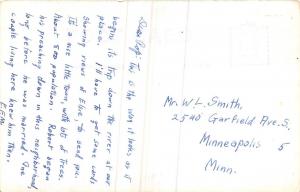 Dear Rog: This is the way it looks as it
begins its trip down the river at our
place. I'll have to get some cards
showing views of Elue, to send you.
It's a nice little town, with lots of trees.
About 800 population. Robert began
his preaching down in this neighborhood,
long before he was married. One
couple living here knew him then.
Mr. W. L. Smith,
2540 Garfield Ave. S.
Minneapolis 5
Minn.